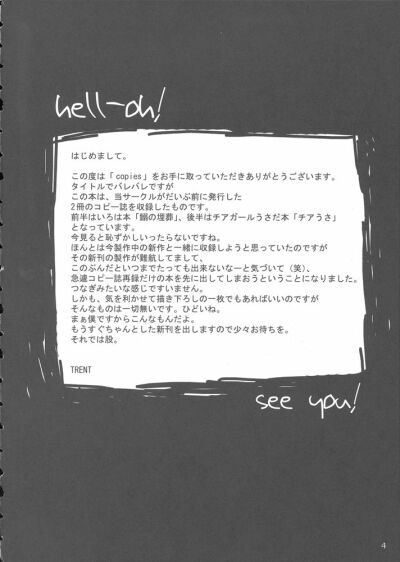 hell-oh!
はじめまして。
この度は「copies」をお手に取っていただきありがとうございます。
タイトルでバレバレですが
この本は、当サークルがだいぶ前に発行した
2冊のコピー誌を収録したものです。
前半はいろは本「鰯の埋葬」、後半はチアガールうさだ本「チアうさ」
となっています。
今見ると恥ずかしいったらないですね。
ほんとは今製作中の新作と一緒に収録しようと思っていたのですが
その新刊の製作が難航してまして、
このぶんだといつまでたっても出来ないなーと気づいて（笑）、
急遽コピー誌再録だけの本を先に出してしまおうということになりました。
つなぎみたいな感じですいません。
しかも、気を利かせて描き下ろしの一枚でもあればいいのですが
そんなものは一切無いです。ひどいね。
まぁ僕ですからこんなもんだよ。
もうすぐちゃんとした新刊を出しますので少々お待ちを。
それでは設。
TRENT
see you!
4